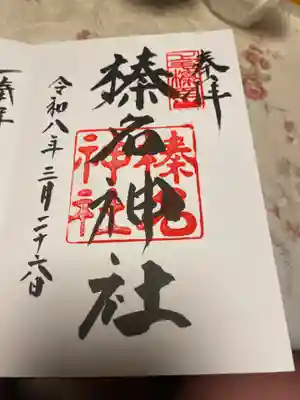 奉拝
榛名神社
榛名
神社
令和八年三月二十六日